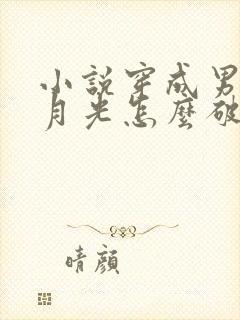 小說穿成男
月光怎麼破
晴顏